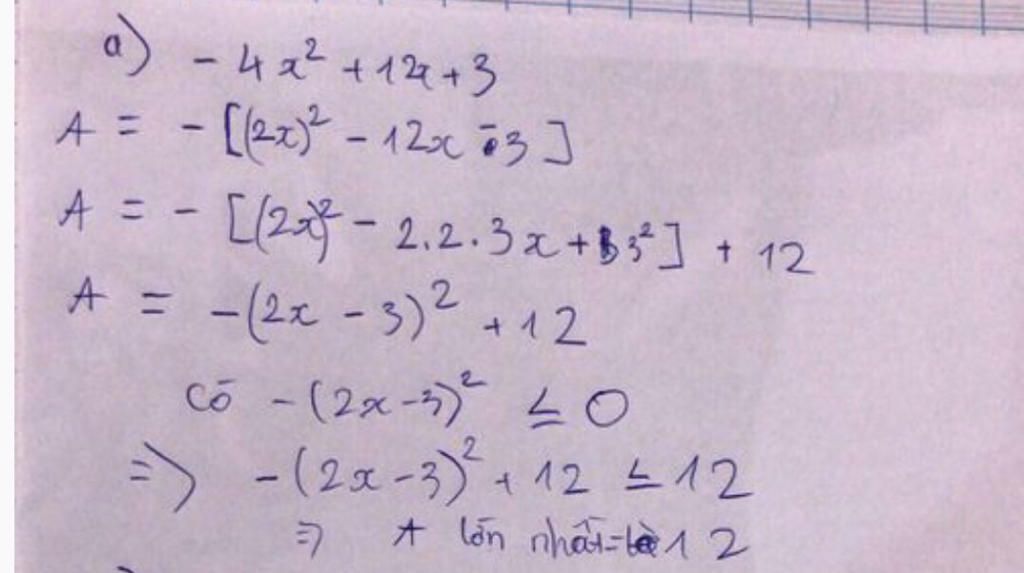 a) - 4x² + 12x + 3
A = - [(2x)² - 12x - 3]
A = - [(2x)² - 2.2.3x + 3²] + 12
A = -(2x - 3)² + 12
Có -(2x-3)² ≤ 0
=> -(2x-3)² + 12 ≤ 12
=> A lớn nhất = 12